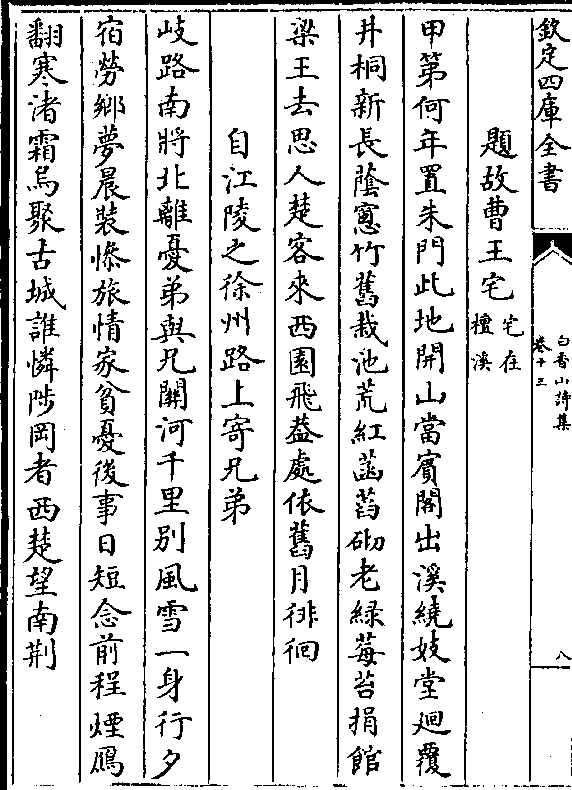 欽定四庫全書
白香山詩集
卷十三
八
題故曹王宅宅在檀溪
甲第何年置朱門此地開山當賓閣出溪繞妓堂廻覆
井桐新長蔭窻竹舊栽池荒紅菡萏砌老綠莓苔捐館
梁王去思人楚客來西園飛葢處依舊月徘徊
自江陵之徐州路上寄兄弟
岐路南將北離憂弟與兄關河千里别風雪一身行夕
宿勞鄉夢晨裝慘旅情家貧憂後事日短念前程煙鴈
翻寒渚霜烏聚古城誰憐陟岡者西楚望南荆